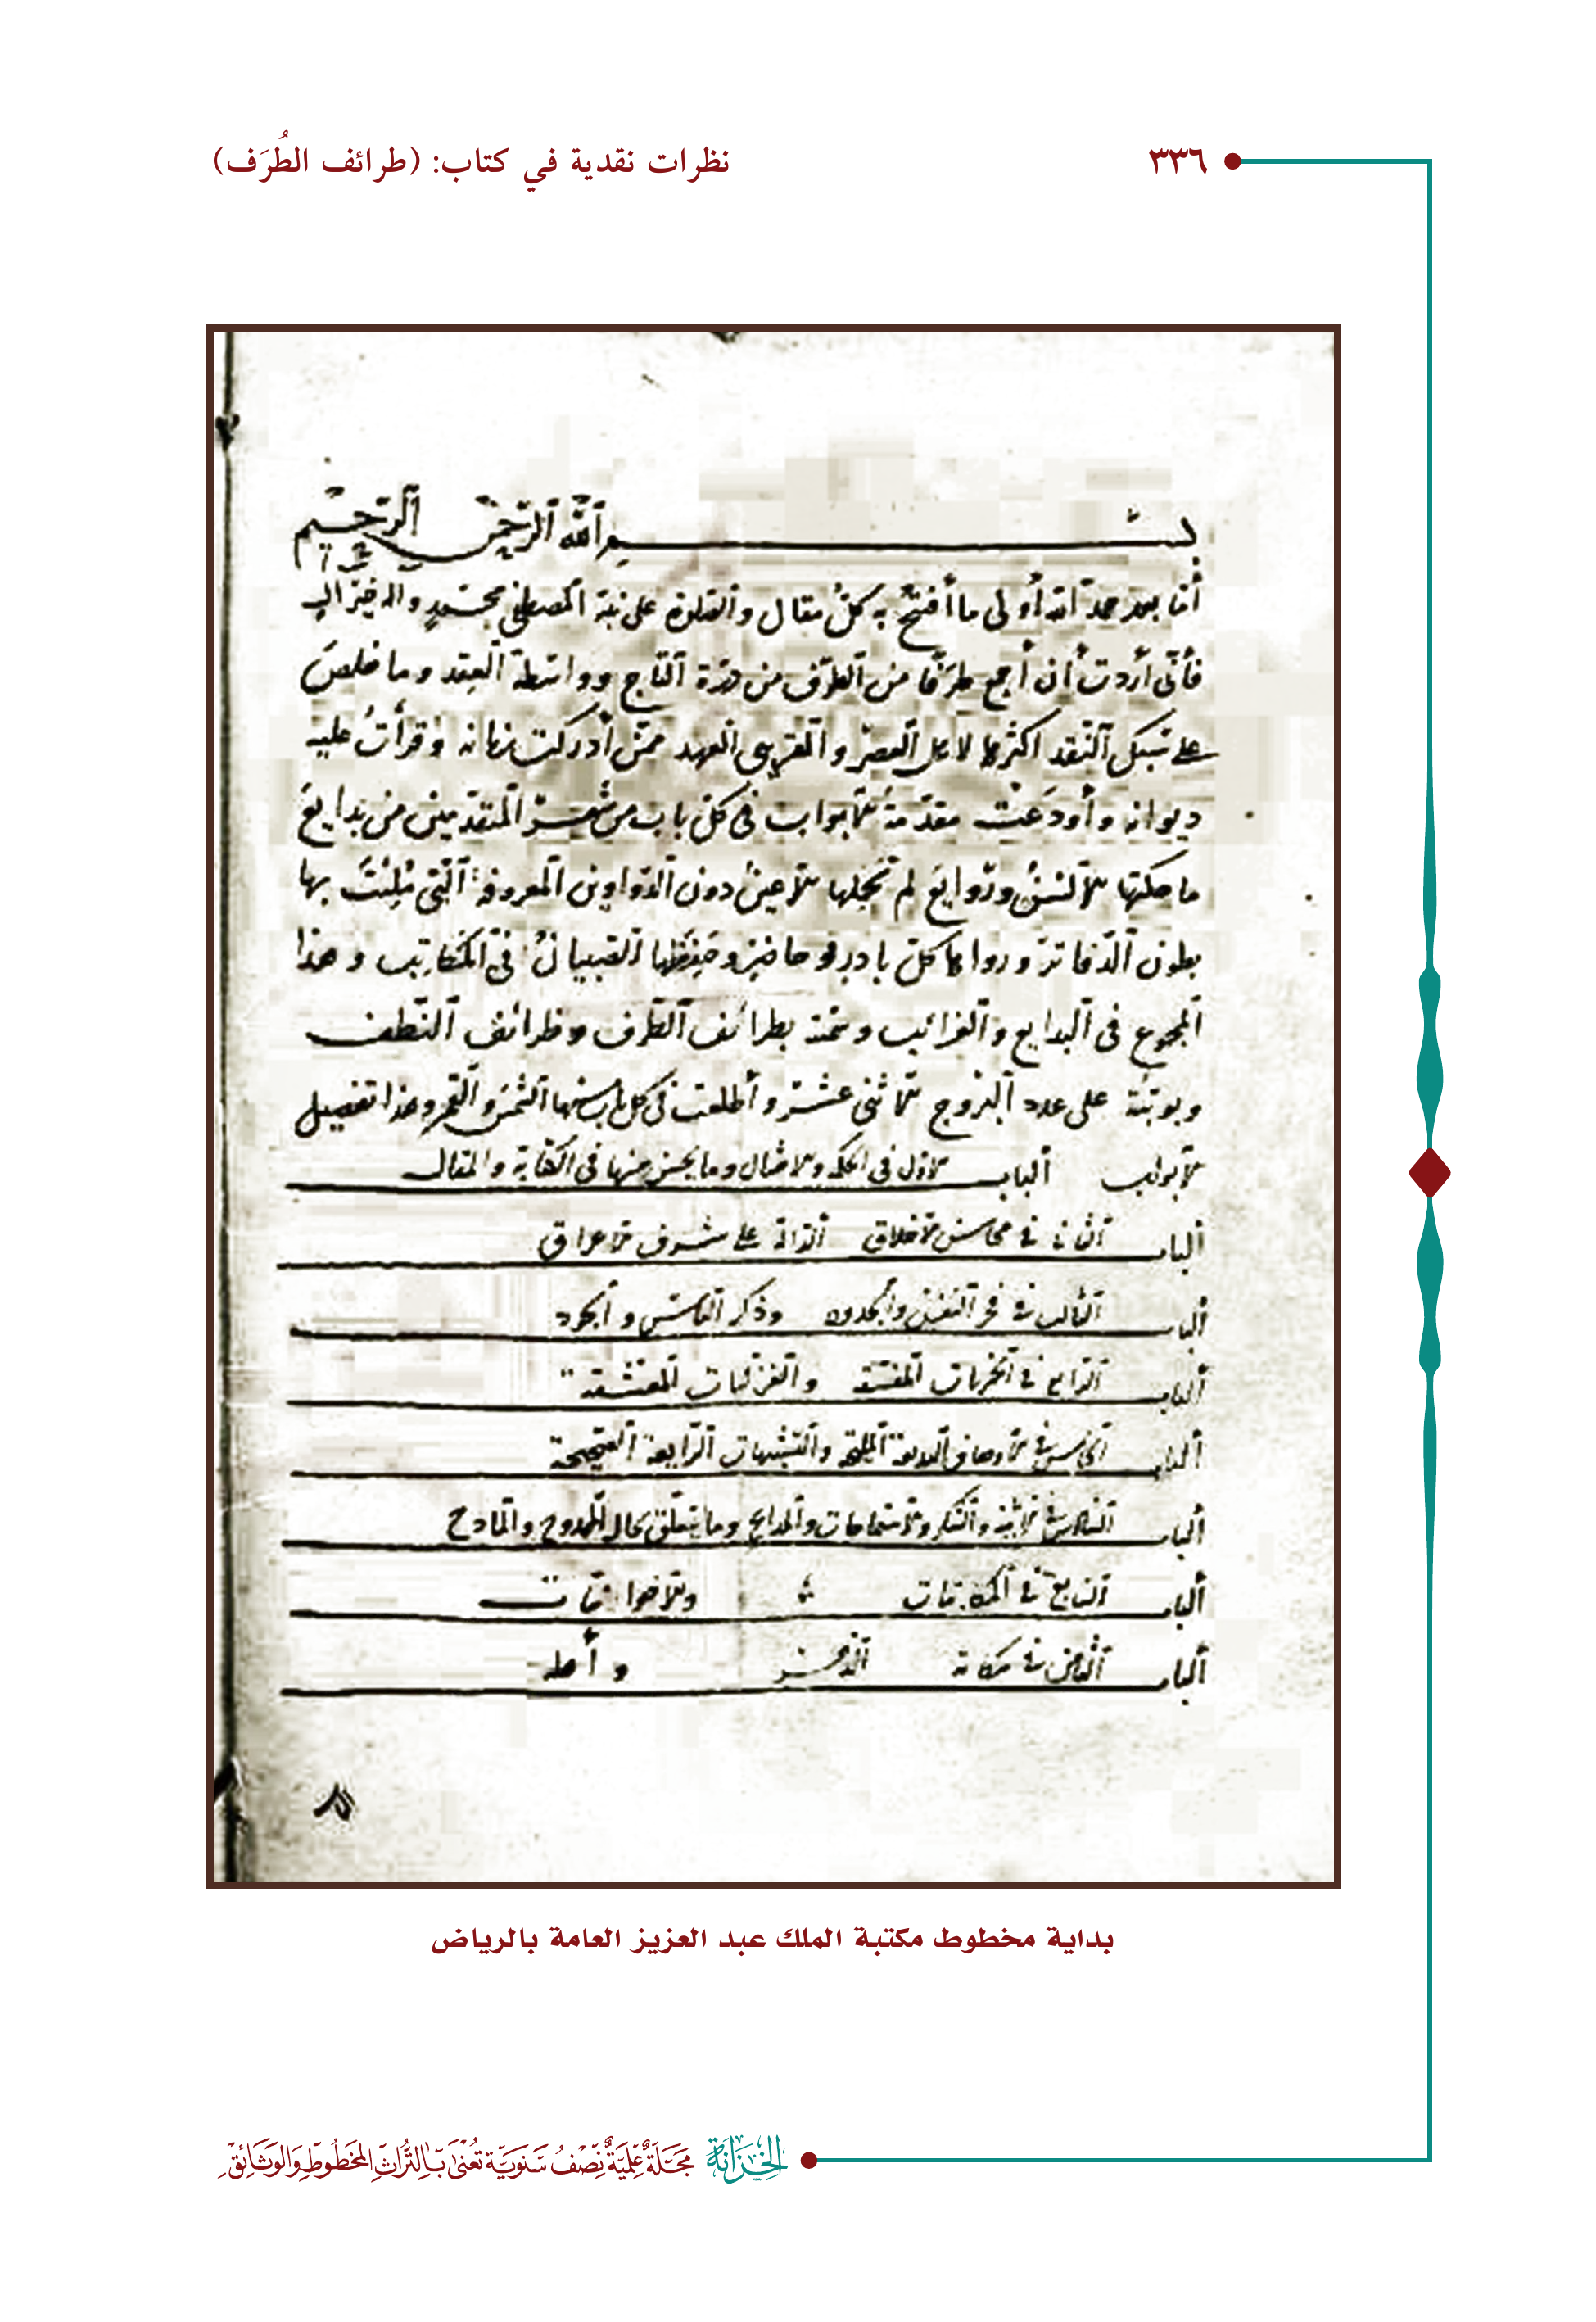 ٣٣٦
نظرات نقدية في كتاب: (طرائف الطُرَف)
بسم الله الرحمن الرحيم
أما بعد حمد الله أولى ما أفتتح به كل مقال والصلاة على نبيه المصطفى محمد وآله خير آل
فأنى أردت أن أجمع طرفا من الطرف من درة التاج وواسطة العقد وما خلص
على سبك النقد اكثرها لاهل العصر والقريبى العهد ممن أدركت زمانه وقرأت عليه
ديوانه وأودعت مقدمة الابواب في كل باب من شعر المتقدمين من بدايع
ما حكتها الالسن وروايع لم تجلها الاعين دون الدواوين المعروفة التي ملئت بها
بطون الدفاتر ورواها كل باد وحاضر وحفظها الصبيان في المكاتيب وهذا
المجموع في البدايع والغرائب وسمته بطرائف الطرف وظرائف النطف
وبوبته على عدد البروج الاثنى عشر وأطلعت في كل باب منها الشمس والقمر وهذا تفصيل
الابواب الباب الاول في الحكم والامثال وما يحسن منها في الكتابة والمقال
الباب الثاني في محاسن الاخلاق الدالة على شرف الاعراق
الباب الثالث في وذكر و
الباب الرابع في الخمريات والغزليات المعشقة
الباب الخامس في الاوصاف البديعة المليحة والتشبيهات الرايعة الصحيحة
الباب السادس في الاثنية والشكر والاستماحات والمدايح وما يتعلق بحال الممدوح والمادح
الباب السابع في المكاتبات والاخوانيات
الباب الثامن في شكاية الدهر وأهله
بداية مخطوط مكتبة الملك عبد العزيز العامة بالرياض
الخِزَانَة مَجَلَّةٌ عِلْمِيَّةٌ نِصْفُ سَنَوِيَّة تُعْنَى بِالتُّرَاثِ المَخْطُوطِ وَالوَثَائِقِ